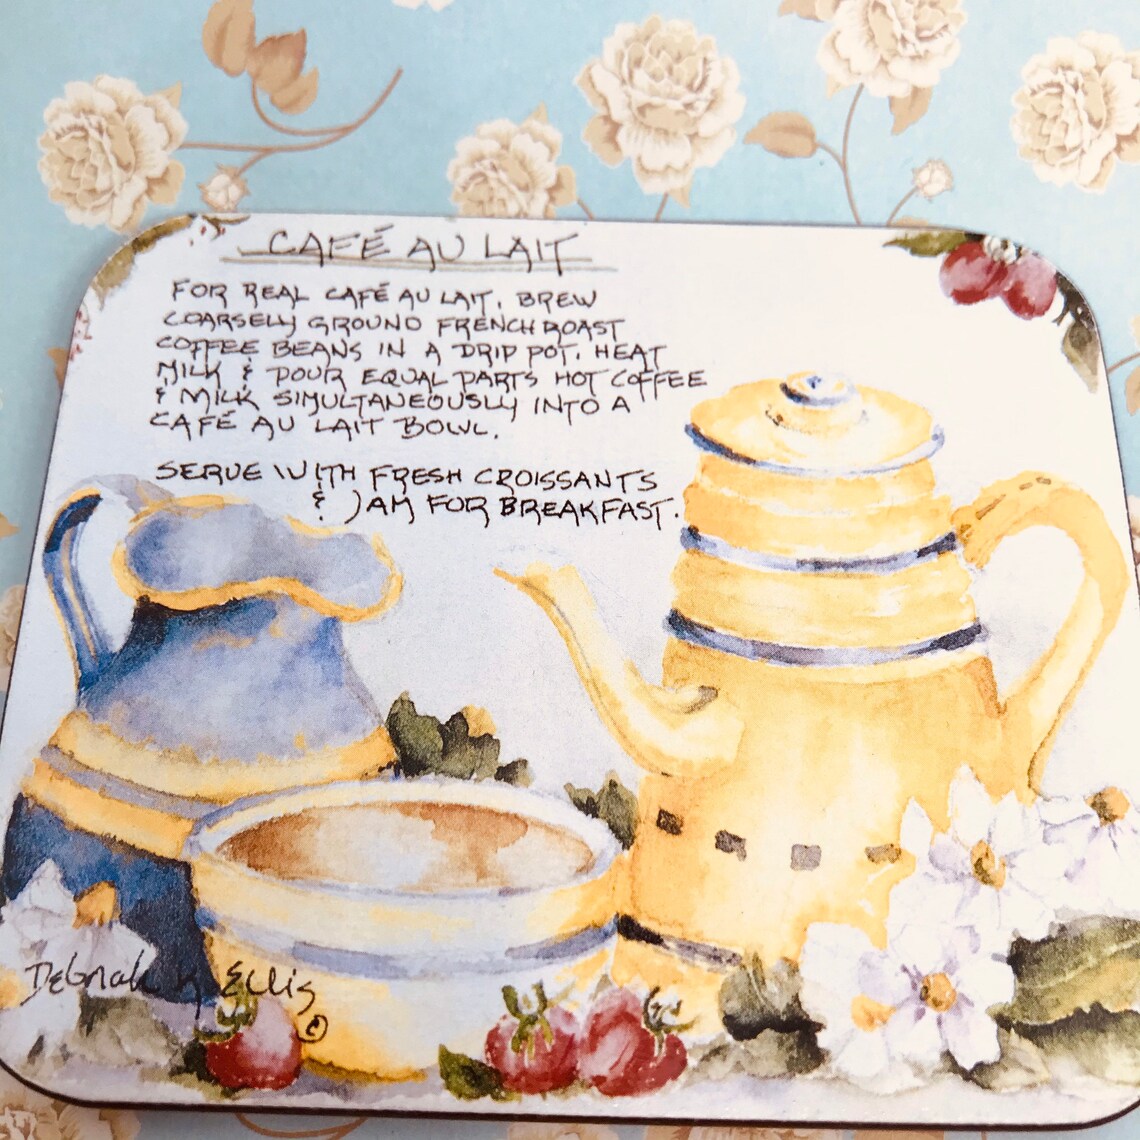 CAFÉ AU LAIT
FOR REAL CAFÉ AU LAIT, BREW
COARSELY GROUND FRENCH ROAST
COFFEE BEANS IN A DRIP POT. HEAT
MILK & POUR EQUAL PARTS HOT COFFEE
& MILK SIMULTANEOUSLY INTO A
CAFÉ AU LAIT BOWL.
SERVE WITH FRESH CROISSANTS
& JAM FOR BREAKFAST.
Deborah K Ellis
©